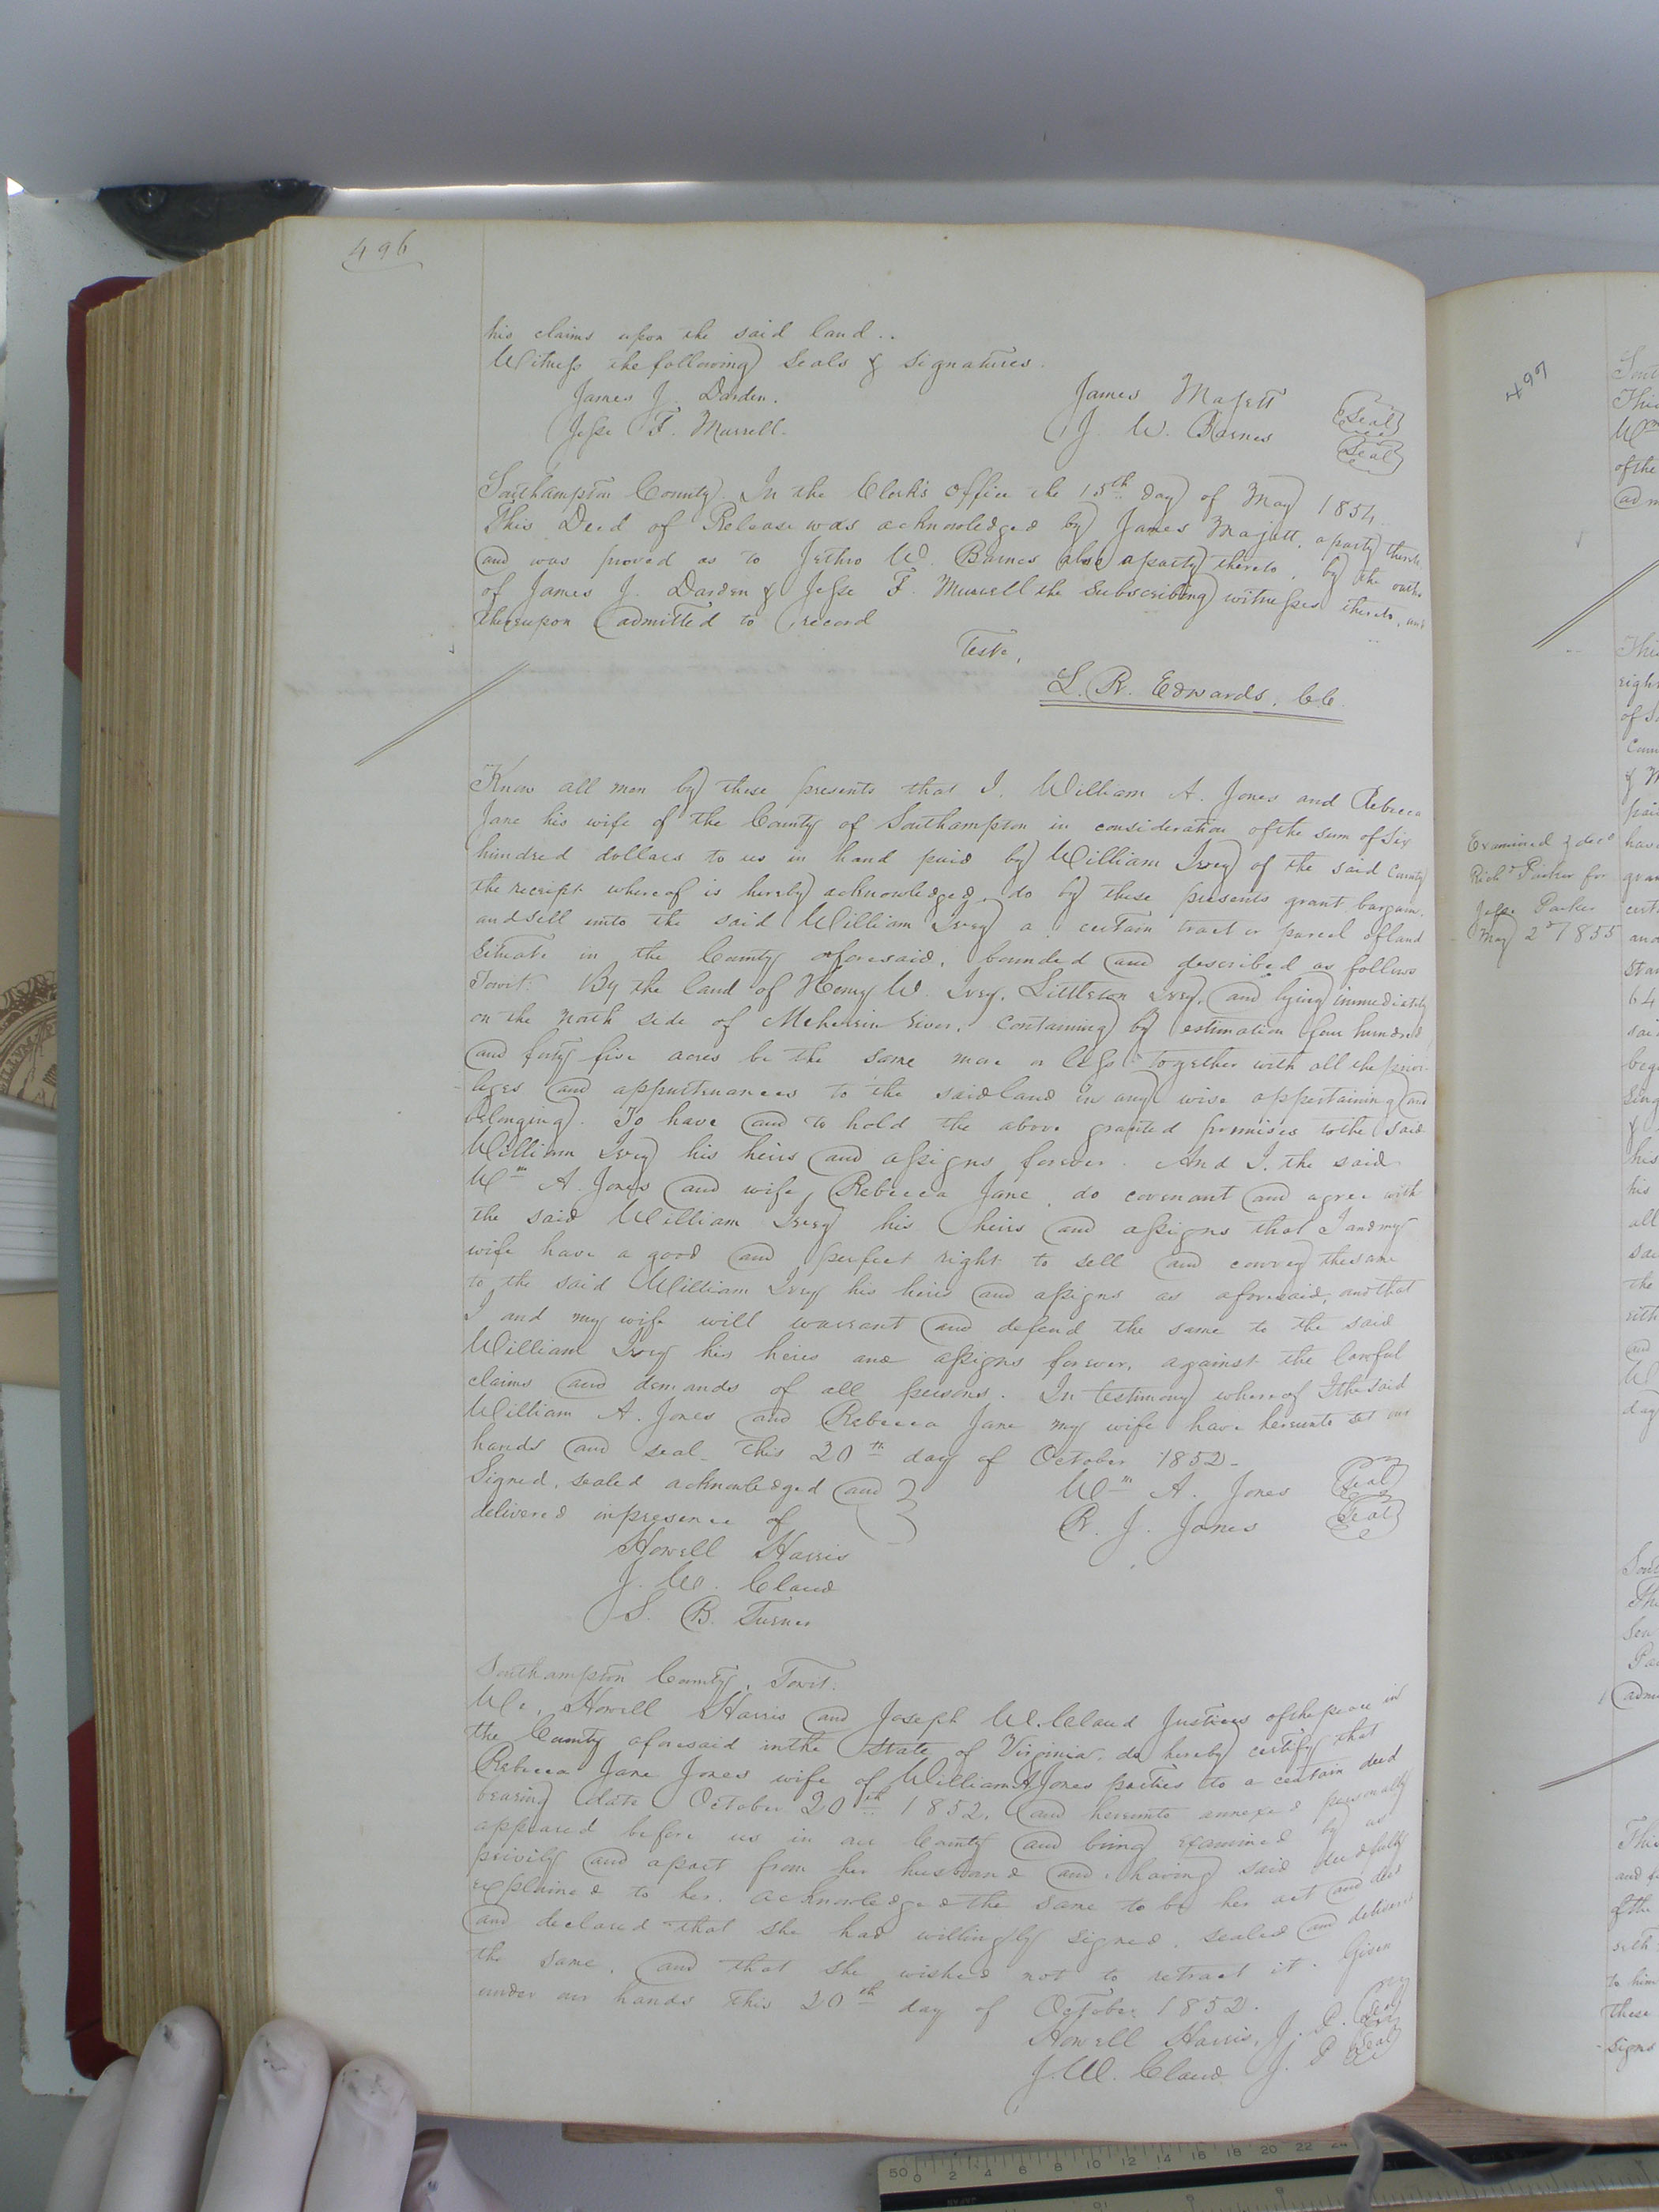 496
his claims upon the said land..
Witness the following Seals & Signatures.
James J. Darden. James Majett Seal
Jesse F. Murrell. J. W. Barnes Seal
Southampton County. In the Clerk's Office the 15th day of May 1854
This Deed of Release was acknowledged by James Majett, a party thereto
and was proved as to Jethro W. Barnes also a party thereto, by the oaths
of James J. Darden & Jesse F. Murrell the Subscribing witnesses thereto, and
thereupon admitted to record
Teste,
L. R. Edwards, C.C.
Know all men by these presents that I. William A. Jones and Rebecca
Jane his wife of the County of Southampton in consideration of the sum of Six
hundred dollars to us in hand paid by William Ivey of the said County
the receipt whereof is hereby acknowledged, do by these presents grant bargain,
and sell unto the said William Ivey a certain tract or parcel of land
Situate in the County aforesaid, bounded and described as follows
Towit: By the land of Henry W. Ivey, Littleton Ivey, and lying immediately
on the North side of Meherrin River, containing by estimation four hundred
and forty five acres be the same more or less together with all the privi-
leges and appurtenances to the said land in any wise appertaining and
belonging. To have and to hold the above granted premises to the said
William Ivey his heirs and assigns forever. And I. the said
Wm A. Jones and wife, Rebecca Jane, do covenant and agree with
the said William Ivey his heirs and assigns that I and my
wife have a good and perfect right to sell and convey the same
to the said William Ivey his heirs and assigns as aforesaid; and that
I and my wife will warrant and defend the same to the said
William Ivey his heirs and assigns forever, against the lawful
claims and demands of all persons. In testimony whereof I the said
William A. Jones and Rebecca Jane my wife have hereunto set our
hands and seal this 20th day of October 1852-
Signed, sealed acknowledged and Wm A. Jones Seal
delivered in presence of R. J. Jones Seal
Howell Harris
J. W. Claud
S. B. Turner
Southampton County, Towit.
We, Howell Harris and Joseph W. Claud Justices of the peace in
the County aforesaid in the State of Virginia, do hereby certify that
Rebecca Jane Jones wife of William A Jones parties to a certain deed
bearing date October 20th 1852, and hereunto annexed personally
appeared before us in our County and being examined by us
privily and apart from her husband and having said deed fully
explained to her, acknowledged the same to be her act and deed
and declared that she had willingly signed, sealed and delivered
the same, and that she wished not to retract it. Given
under our hands this 20th day of October 1852.
Howell Harris, J. P. Seal
J. W. Claud J. P Seal
497
Examined & deld
Richd Parker for
Jesse Parker
May 2d 1855